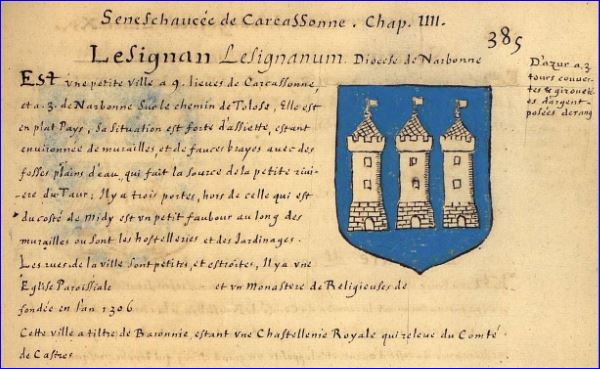 Seneschaucée de Carcassonne. Chap. IIII.
385
Lesignan Lesignanum. Diocese de Narbonne
Est vne petite ville a 9. lieues de Carcassonne,
et a .3. de Narbonne sur le chemin de Tolose, Elle est
en plat Pays, sa situation est forte d'assiette, estant
environnée de murailles, et de fauces brayes avec des
fosses plains d'eau, qui fait la source de la petite rivi-
ere du Taur; Il y a trois portes, hors de celle qui est
du costé de midy est vn petit faubour au long des
murailles ou sont les hostelleries et des Jardinages.
Les rues de la ville sont petites, et estroites, Il y a vne
Eglise Paroissiale et vn Monastere de Religieuses de
fondée en l'an 1306
Cette ville a tiltre de Baronnie, estant vne Chastellenie Royale qui releue du Comté
de Castres
D'azur a .3.
tours couver-
tes & girouet-
es d'argent
posées de rang